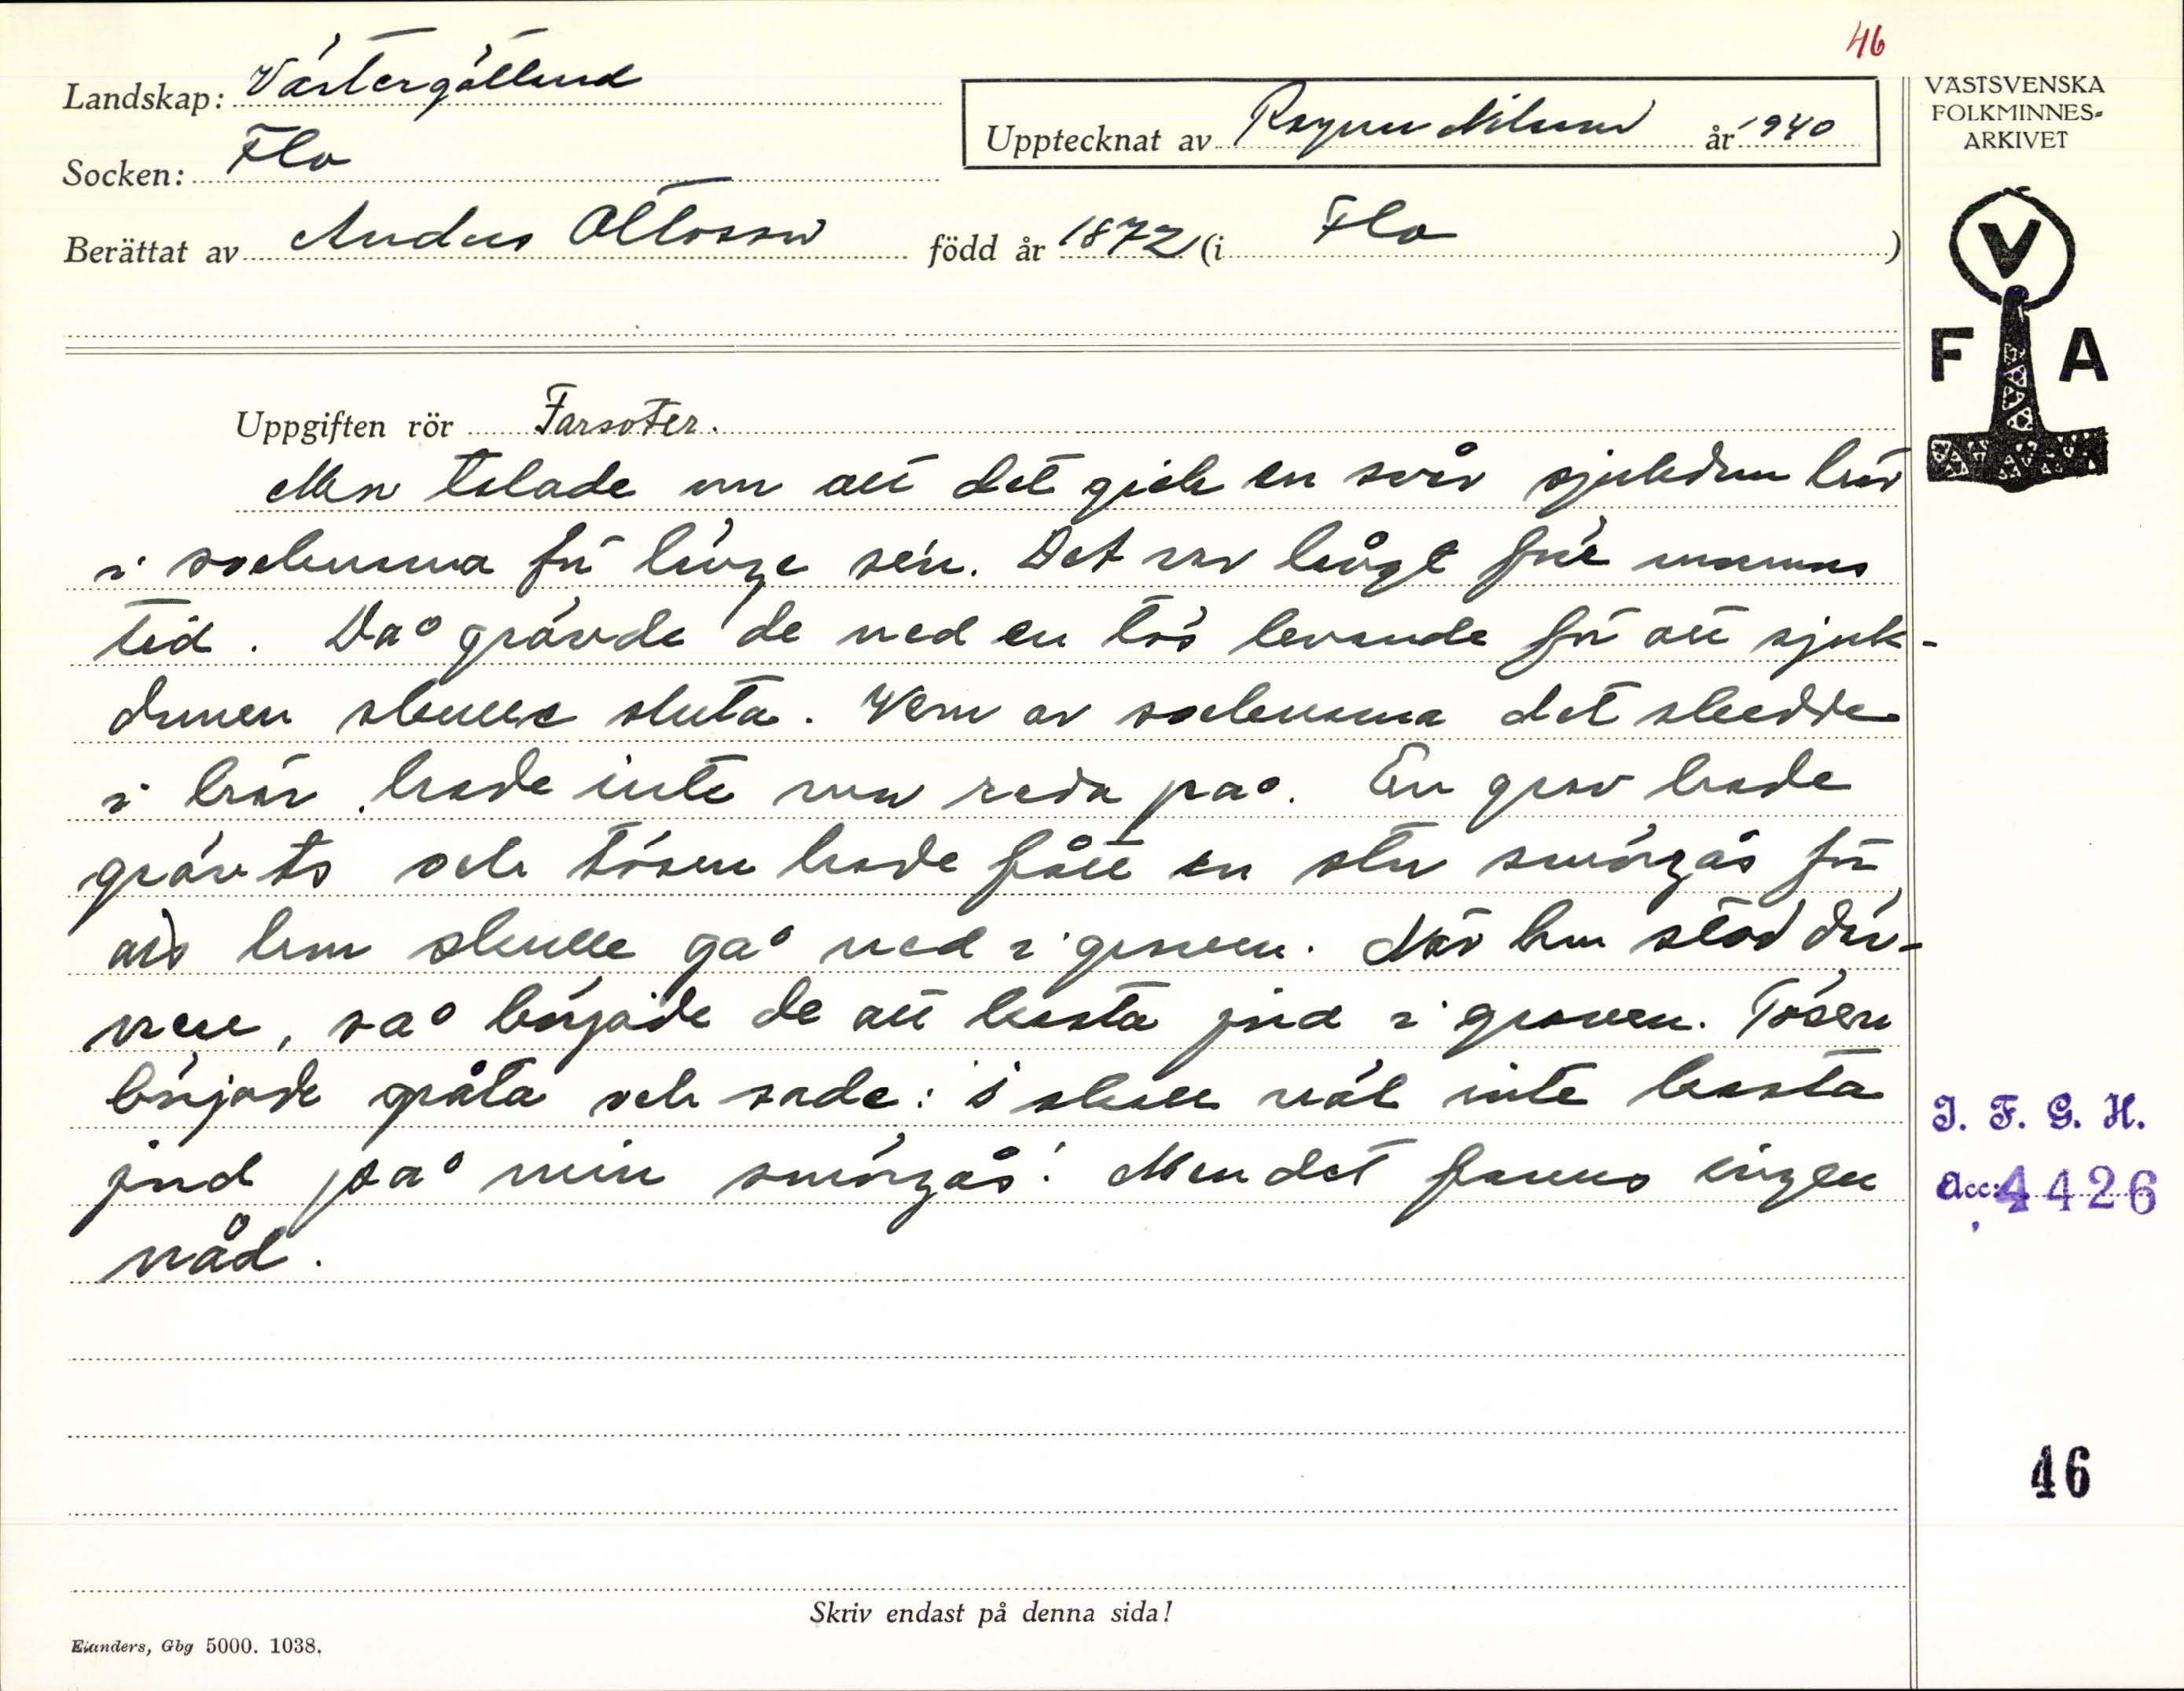 46
Landskap: Västergötland
Upptecknat av Ragnar Nilsson år 1940
VÄSTSVENSKA
FOLKMINNES-
ARKIVET
Socken: Flo
Berättat av Anders Ottosson född år 1872 (i Flo)
V
F A
Uppgiften rör Farsoter.
Men talade om att det gick en svår sjukdom här
i socknarna för länge sen. Det var långt före mormors
tid. Då grävde de ned en tös levande för att sjuk-
domen skulle sluta. Vem av socknarna det skedde
i här hade inte man reda på. En grav hade
grävts och tösen hade fått en stor smörgås för
att hon skulle gå ned i graven. När hon stod där-
nere, så började de att kasta jord i graven. Tösen
började gråta och sade: i skall väl inte kasta
jord på min smörgås! Men det fanns ingen
nåd.
I. F. G. H.
Acc: 4426
46
Skriv endast på denna sida!
Elanders, Gbg 5000. 1038.